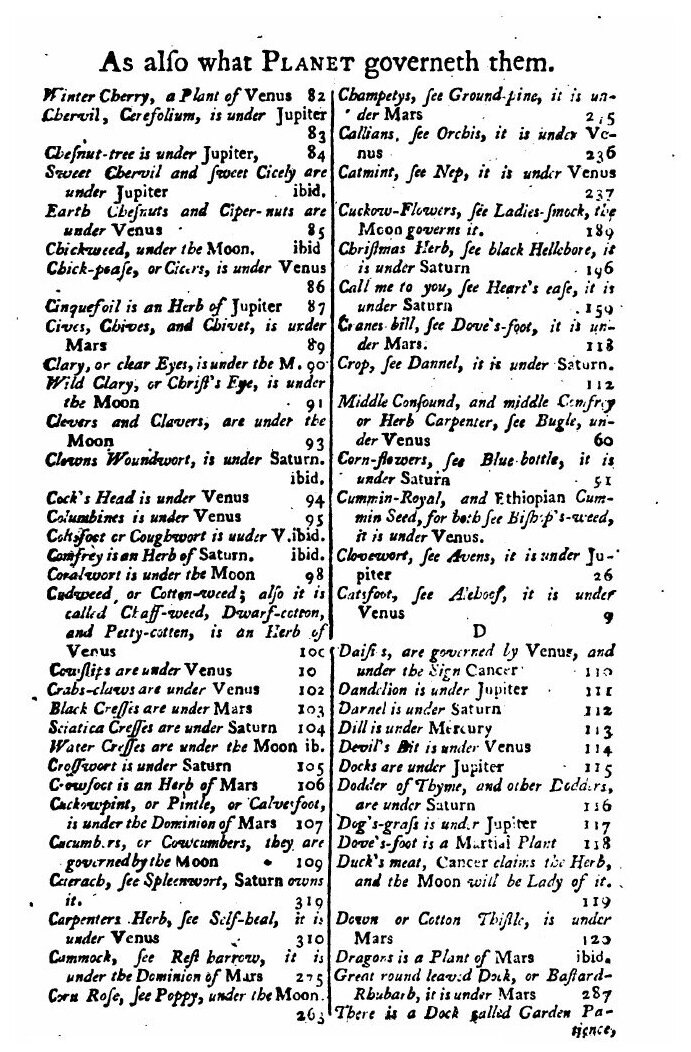 As alſo what PLANET governeth them.
Winter Cherry, a Plant of Venus 82
Chervil, Cerefolium, is under Jupiter
83
Cheſnut-tree is under Jupiter, 84
Sweet Chervil and ſweet Cicely are
under Jupiter ibid.
Earth Cheſnuts and Ciper-nuts are
under Venus 85
Chickweed, under the Moon. ibid
Chick-peaſe, or Cicers, is under Venus
86
Cinquefoil is an Herb of Jupiter 87
Cives, Chives, and Chivet, is under
Mars 89
Clary, or clear Eyes, is under the M. 90
Wild Clary, or Chriſt's Eye, is under
the Moon 91
Clevers and Clavers, are under the
Moon 93
Clowns Woundwort, is under Saturn.
ibid.
Cock's Head is under Venus 94
Columbines is under Venus 95
Coltsfoot or Coughwort is uuder V. ibid.
Comfrey is an Herb of Saturn. ibid.
Coralwort is under the Moon 98
Cudweed, or Cotton-weed; alſo it is
called Chaff-weed, Dwarf-cotton,
and Petty-cotten, is an Herb of
Venus 100
Cowſlips are under Venus 10
Crabs-claws are under Venus 102
Black Creſſes are under Mars 103
Sciatica Creſſes are under Saturn 104
Water Creſſes are under the Moon ib.
Croſſwort is under Saturn 105
Crowfoot is an Herb of Mars 106
Cuckowpint, or Pintle, or Calvesfoot,
is under the Dominion of Mars 107
Cucumb.rs, or Cowcumbers, they are
governed by the Moon 109
Ceterach, ſee Spleenwort, Saturn owns
it. 319
Carpenters Herb, ſee Self-heal, it is
under Venus 310
Cammock, ſee Reſt barrow, it is
under the Dominion of Mars 275
Corn Roſe, ſee Poppy, under the Moon.
263
Champetys, ſee Ground-pine, it is un-
der Mars 215
Callians, ſee Orchis, it is under Ve-
nus 236
Catmint, ſee Nep, it is under Venus
237
Cuckow-Flowers, ſee Ladies-ſmock, the
Moon governs it. 189
Chriſtmas Herb, ſee black Hellebore, it
is under Saturn 196
Call me to you, ſee Heart's eaſe, it is
under Saturn 159
Cranes bill, ſee Dove's-foot, it is un-
der Mars. 118
Crop, ſee Dannel, it is under Saturn.
112
Middle Conſound, and middle Comfrey
or Herb Carpenter, ſee Bugle, un-
der Venus 60
Corn-flowers, ſee Blue-bottle, it is
under Saturn 51
Cummin-Royal, and Ethiopian Cum-
min Seed, for both ſee Biſhop's-weed,
it is under Venus.
Clovewort, ſee Avens, it is under Ju-
piter 26
Catsfoot, ſee Alehoof, it is under
Venus 9
D
Daiſi s, are governed by Venus, and
under the Sign Cancer 110
Dandelion is under Jupiter 111
Darnel is under Saturn 112
Dill is under Mercury 113
Devil's Bit is under Venus 114
Docks are under Jupiter 115
Dodder of Thyme, and other Dodders,
are under Saturn 116
Dog's-graſs is und.r Jupiter 117
Dove's-foot is a Martial Plant 118
Duck's meat, Cancer claims the Herb,
and the Moon will be Lady of it.
119
Down or Cotton Thiſtle, is under
Mars 120
Dragons is a Plant of Mars ibid.
Great round leaved Dock, or Baſtard-
Rhubarb, it is under Mars 287
There is a Dock called Garden Pa-
tience,